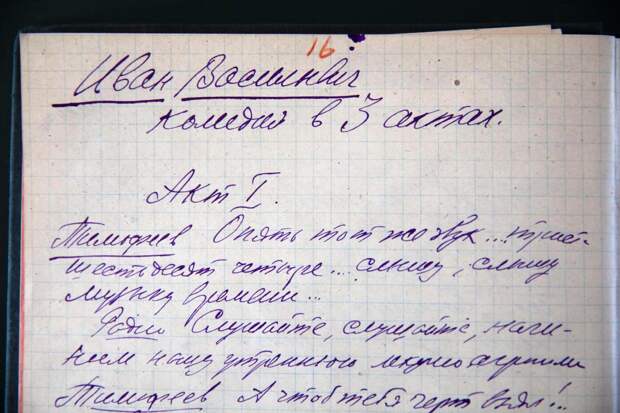 16
Иван Васильевич
Комедия в 3 актах.
Акт I.
Тимофеев Опять тот же звук...
шестьдесят четыре... слышу, слышу
музыку времени...
Радио Слушайте, слушайте, начи-
наем нашу утреннюю лекцию
Тимофеев А чтоб тебя черт взял!..